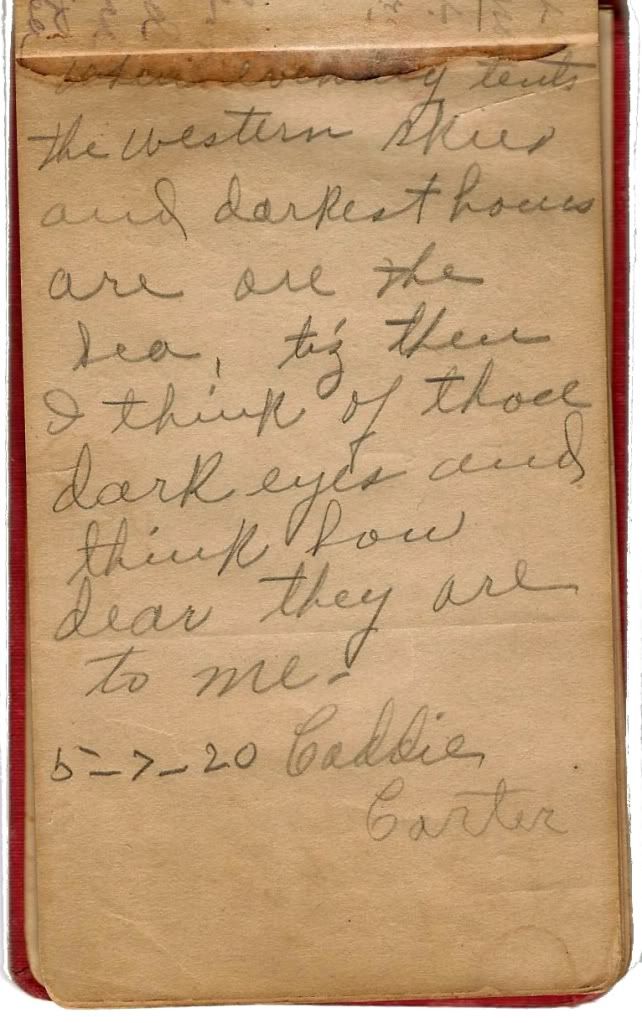 When evening tents
the western skies
and darkest hours
are ore the
sea, tis then
I think of those
dark eyes and
think how
dear they are
to me-
5-7-20 Caddie
Carter